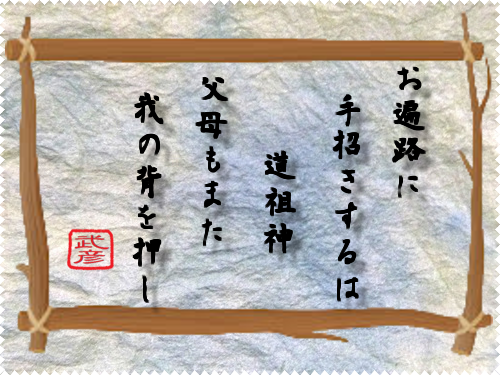 お遍路に
手招きするは
道祖神
父母もまた
我の背を押し
武彦